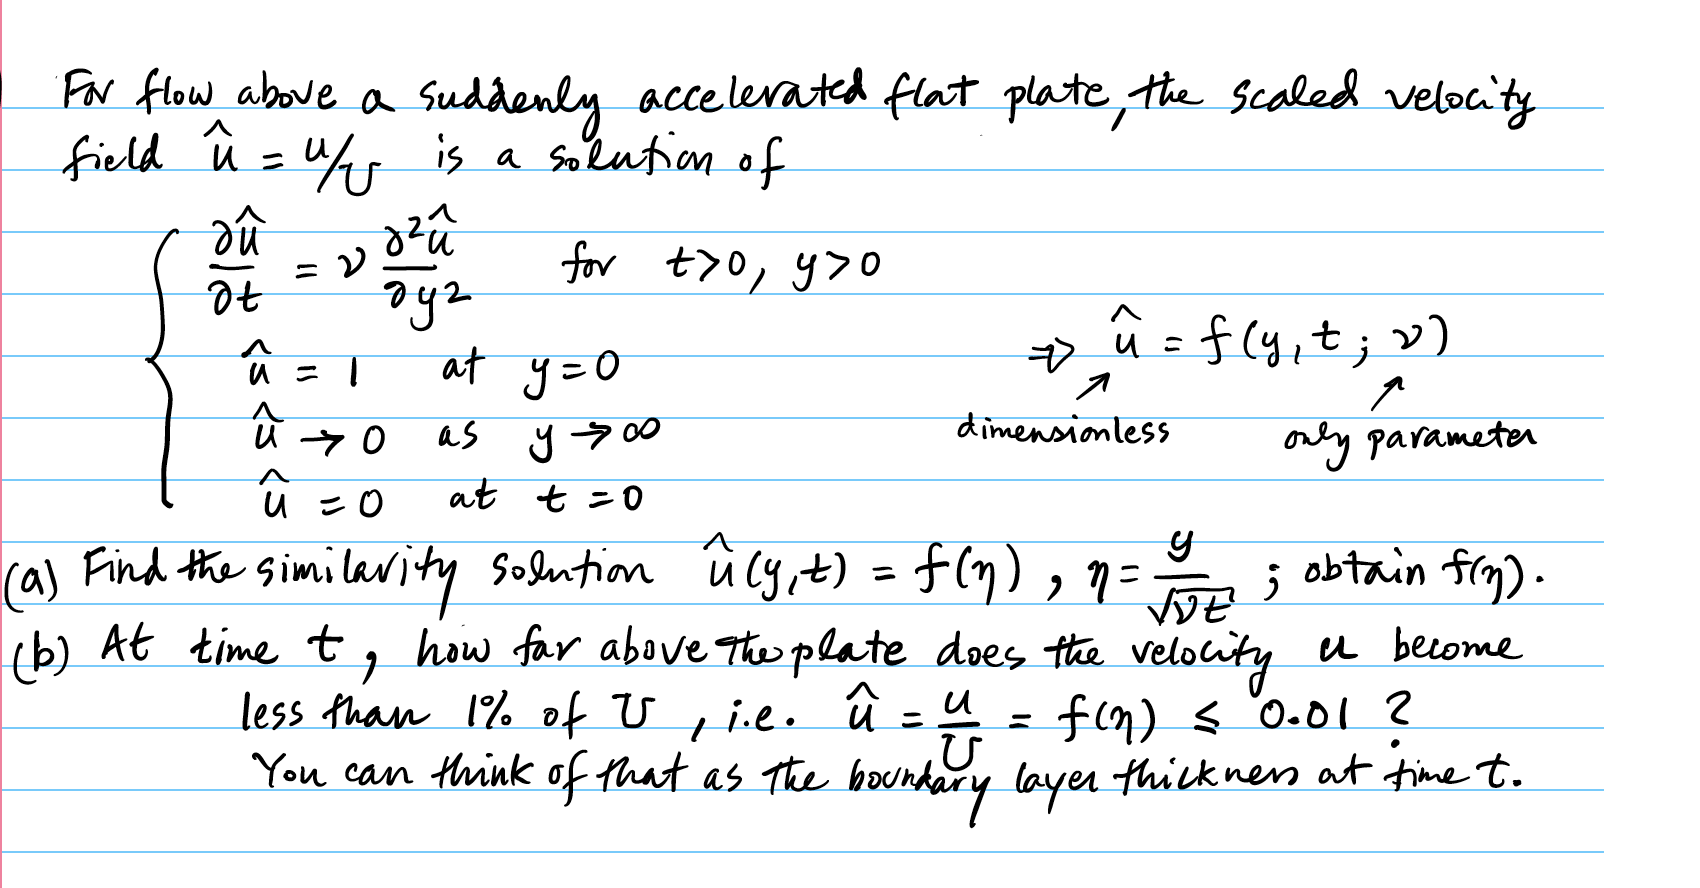 For flow above a suddenly accelerated flat plate, the scaled velocity
field û = u/U is a solution of
∂û/∂t = ν ∂²û/∂y² for t>0, y>0
û = 1 at y=0
⇒ û = f(y,t; ν)
û → 0 as y → ∞
dimensionless only parameter
û = 0 at t = 0
(a) Find the similarity solution û(y,t) = f(η), η = y/√νt ; obtain f(η).
(b) At time t, how far above the plate does the velocity u become
less than 1% of U, i.e. û = u/U = f(η) ≤ 0.01 ?
You can think of that as the boundary layer thickness at time t.